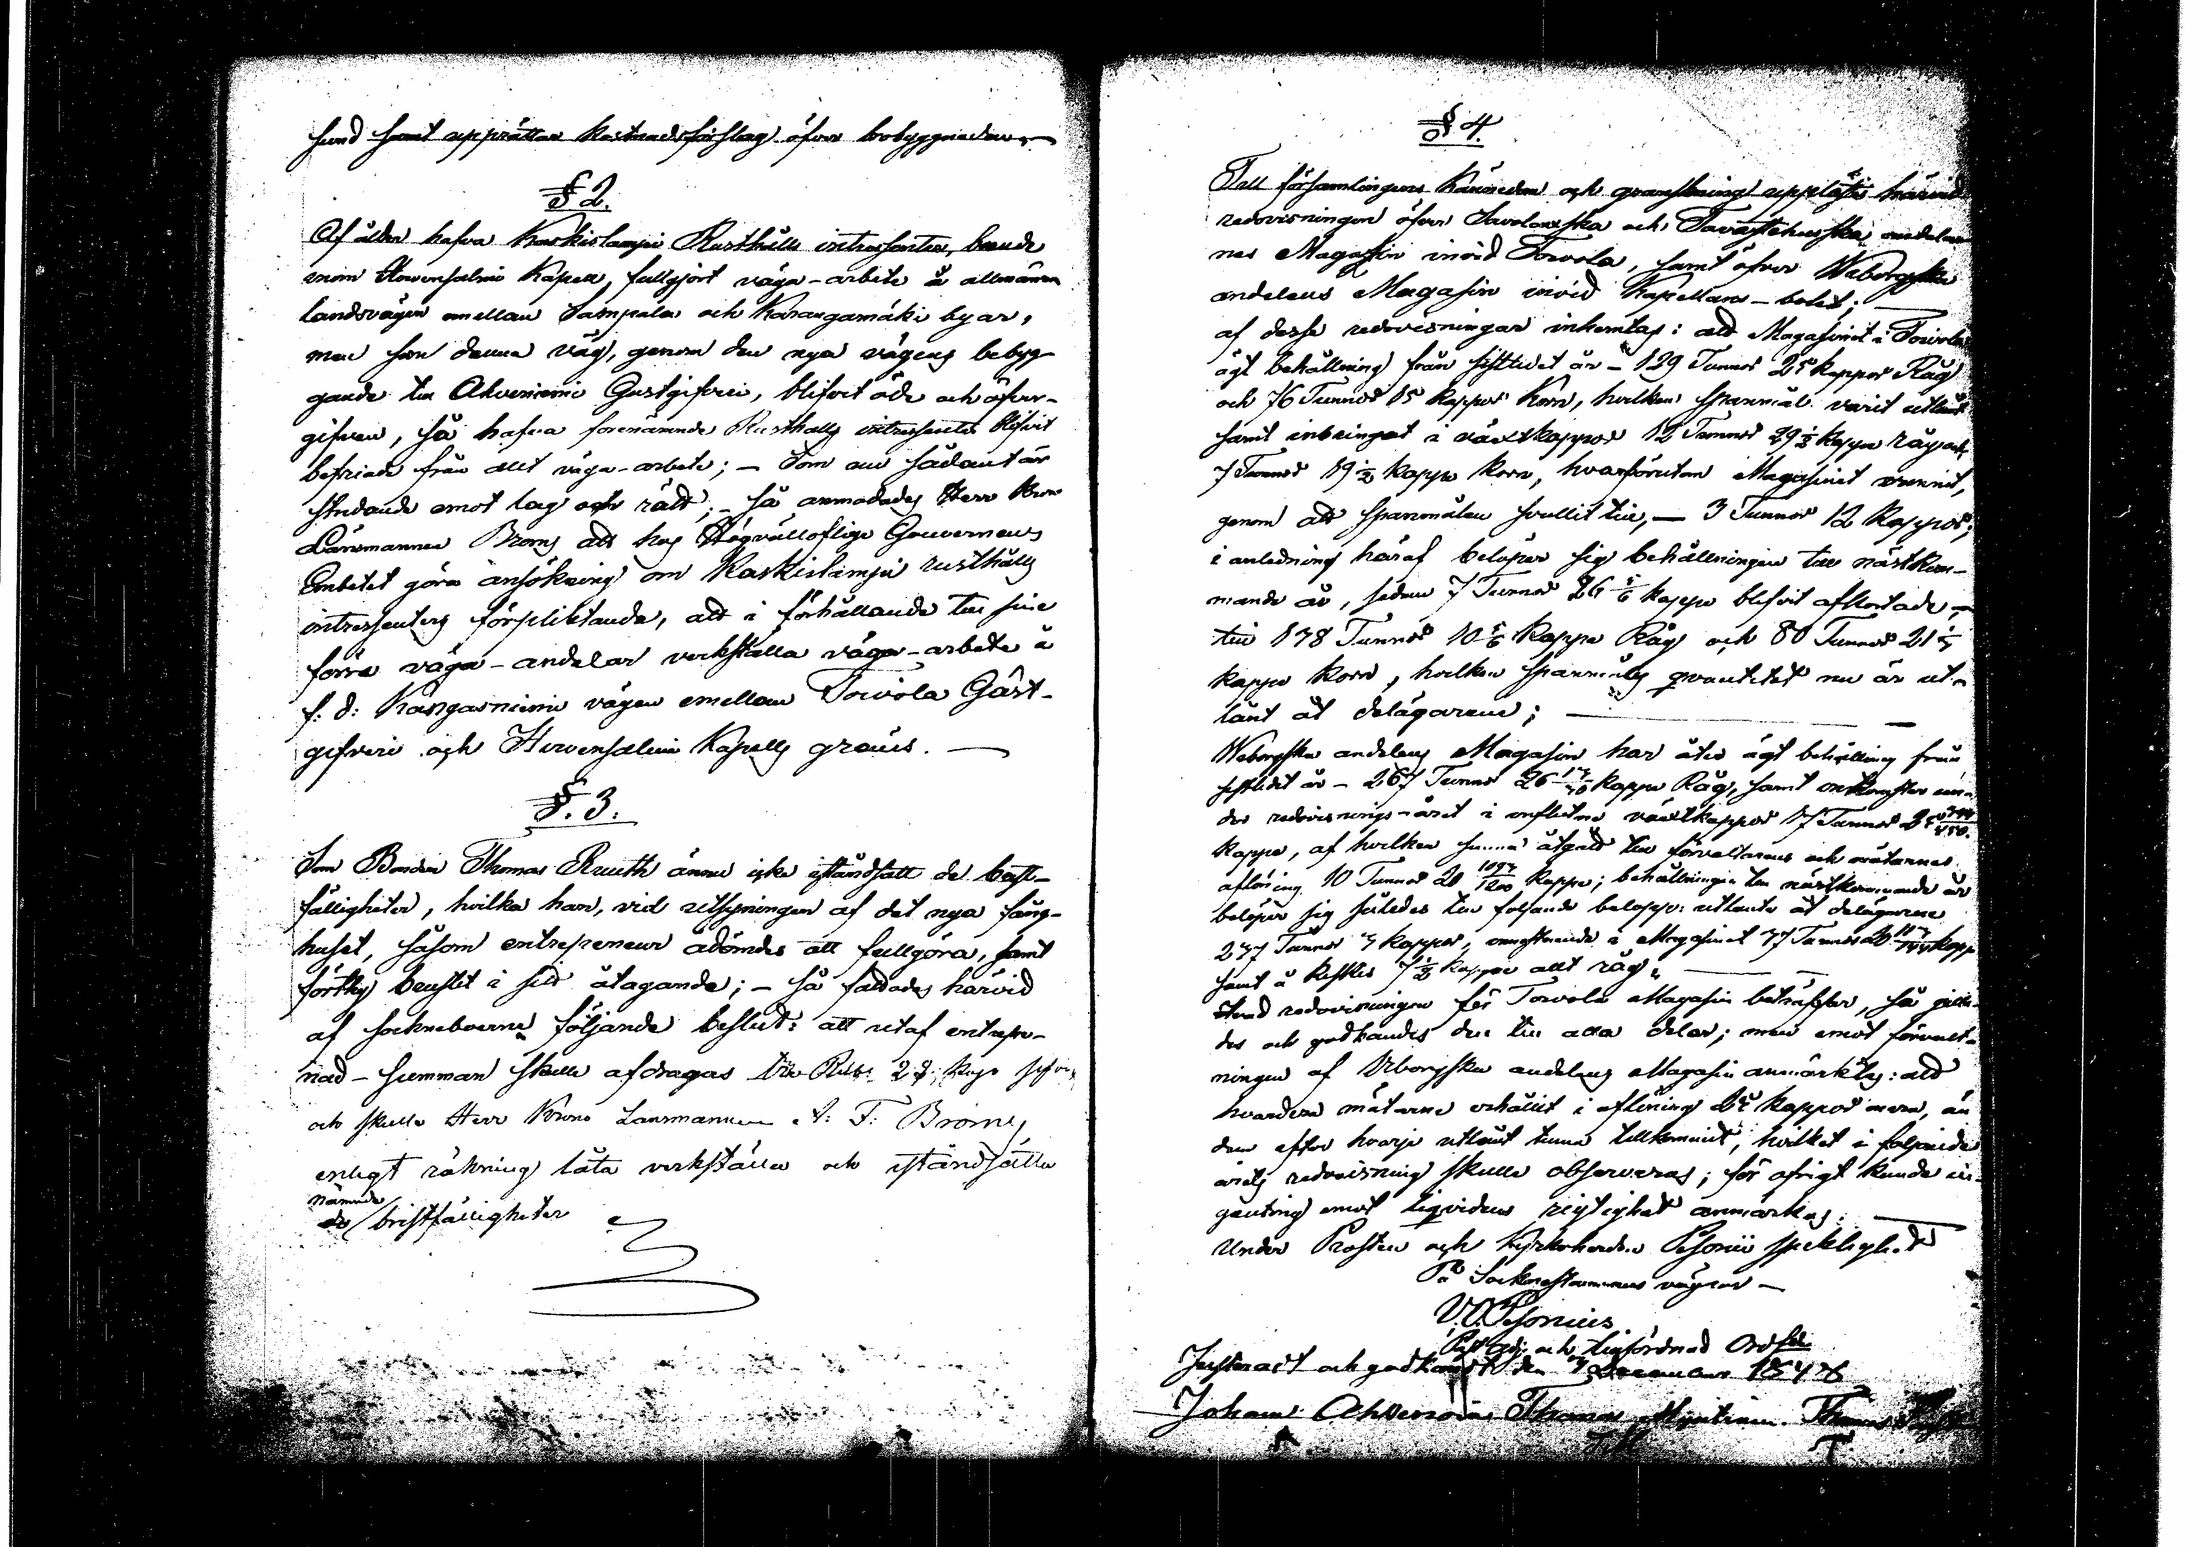 sund samt upprätta kostnadsförslag öfver brobyggnaden,
§ 2.
Af ålder hafva Kaskislampi Rusthålls intressenter, boende
inom Hirvensalmi Kapell, fullgjort väga-arbete å allmänna
landsvägen emellan Lampila och Kangamäki byar,
men som denna väg, genom den nya vägens bebyg-
gande till Ahveniemi Gästgifveri, blifvit öde och öfver-
gifven, så hafva förenämnde Rusthålls intressenter blifvit
befriade från allt väga-arbete; – Som ett sådant är
stridande emot lag och rätt; – så anmodades Herr Krono
Länsmannen Broms att hos Högvällofliga Gouverneurs
Embetet göra ansökning om Kaskislampi rusthålls
intressenters förpliktande, att i förhållande till sine
förra väga-andelar verkställa väga-arbete å
f: d: Kangasniemi vägen emellan Toivola Gäst-
gifveri och Hirvensalmi Kapells gräns. —
§. 3.
Som Bonden Thomas Ruuth ännu icke iståndsatt de brist-
fälligheter, hvilka han, vid utsyningen af det nya fång-
huset, såsom entrepreneur ådömdes att fullgöra, samt
förthy brustit i sitt åtagande; – så fattades härvid
af sockneboerne följande beslut: att utaf entrepre-
nad-summan skulle afdragas Rub: 28 Kop: Silfver,
och skulle Herr Krono Länsmannen A: F: Broms
enligt räkning låta verkställa och iståndsätta
nämnde
bristfälligheter
§ 4.
Till församlingens kännedom och granskning upplästes härvid
redovisningen öfver Savolaxska och Tavastehusska andelar-
nes Magasin invid Toivola, samt öfver Wiborgska
andelens Magasin invid Kapellans-bolet; —
af desse redovisningar inhemtas: att Magasinet i Toivola
ägt behållning från sistlidet år – 129 Tunnor 25 kappor Råg
och 76 Tunnor 15 kappor Korn, hvilken spannmål varit utlånt
samt inbringat i växtkappor 12 Tunnor 29 1/2 kappe råg och
7 Tunnor 19 1/2 kappe korn, hvarförutom Magasinet vunnit,
genom att spannmålen svullit till, — 3 Tunnor 12 Kappor;
i anledning häraf belöper sig behållningen till nästkom-
mande år, sedan 7 Tunnor 26 1/6 kappe blifvit afkortade,
till 138 Tunnor 10 1/6 kappe Råg och 80 Tunnor 21
kappe korn, hvilken spannmåls qvantitet nu är ut-
lånt åt delägarene; —
Wiborgska andelens Magasin har åter ägt behållning från
sistlidet år – 267 Tunnor 26 kappe Råg, samt
redovisnings-året i influtne växtkappor 17 Tunnor
kappe, af hvilken summa åtgått till förvaltarens och mätarnes
aflöning 10 Tunnor 20 1097/1200 kappe; behållningen till nästkommande år
belöper sig således till följande belopp: utlånte åt delägarene
277 Tunnor 7 kappor, i Magasinet 77 Tunnor kappe
samt å Restlis 7 1/2 kappe allt råg. —
Hvad redovisningen för Toivola Magasin beträffar, så gilla-
des och godkändes den till alla delar; men emot förvalt-
ningen af Wiborgska andelens Magasin anmärktes: att
hvardera mätarne erhållit i aflöning kappor mera, än
dem efter hvarje utlånt tunna tillkommit, hvilket i följande
årets redovisning skulle observeras; för öfrigt kunde in-
genting emot liqvidens riktighet anmärkas. —
Under Prosten och Kyrkoherden Pesonii sjuklighet
På Sockenstämmans vägnar —
V. O. Pesonius.
Past. adj. och tillförordnad Ordf.
Justeradt och godkändt den December 1847
Johan Ahvenainen Thomas Myntinen Thomas
T. M. T.